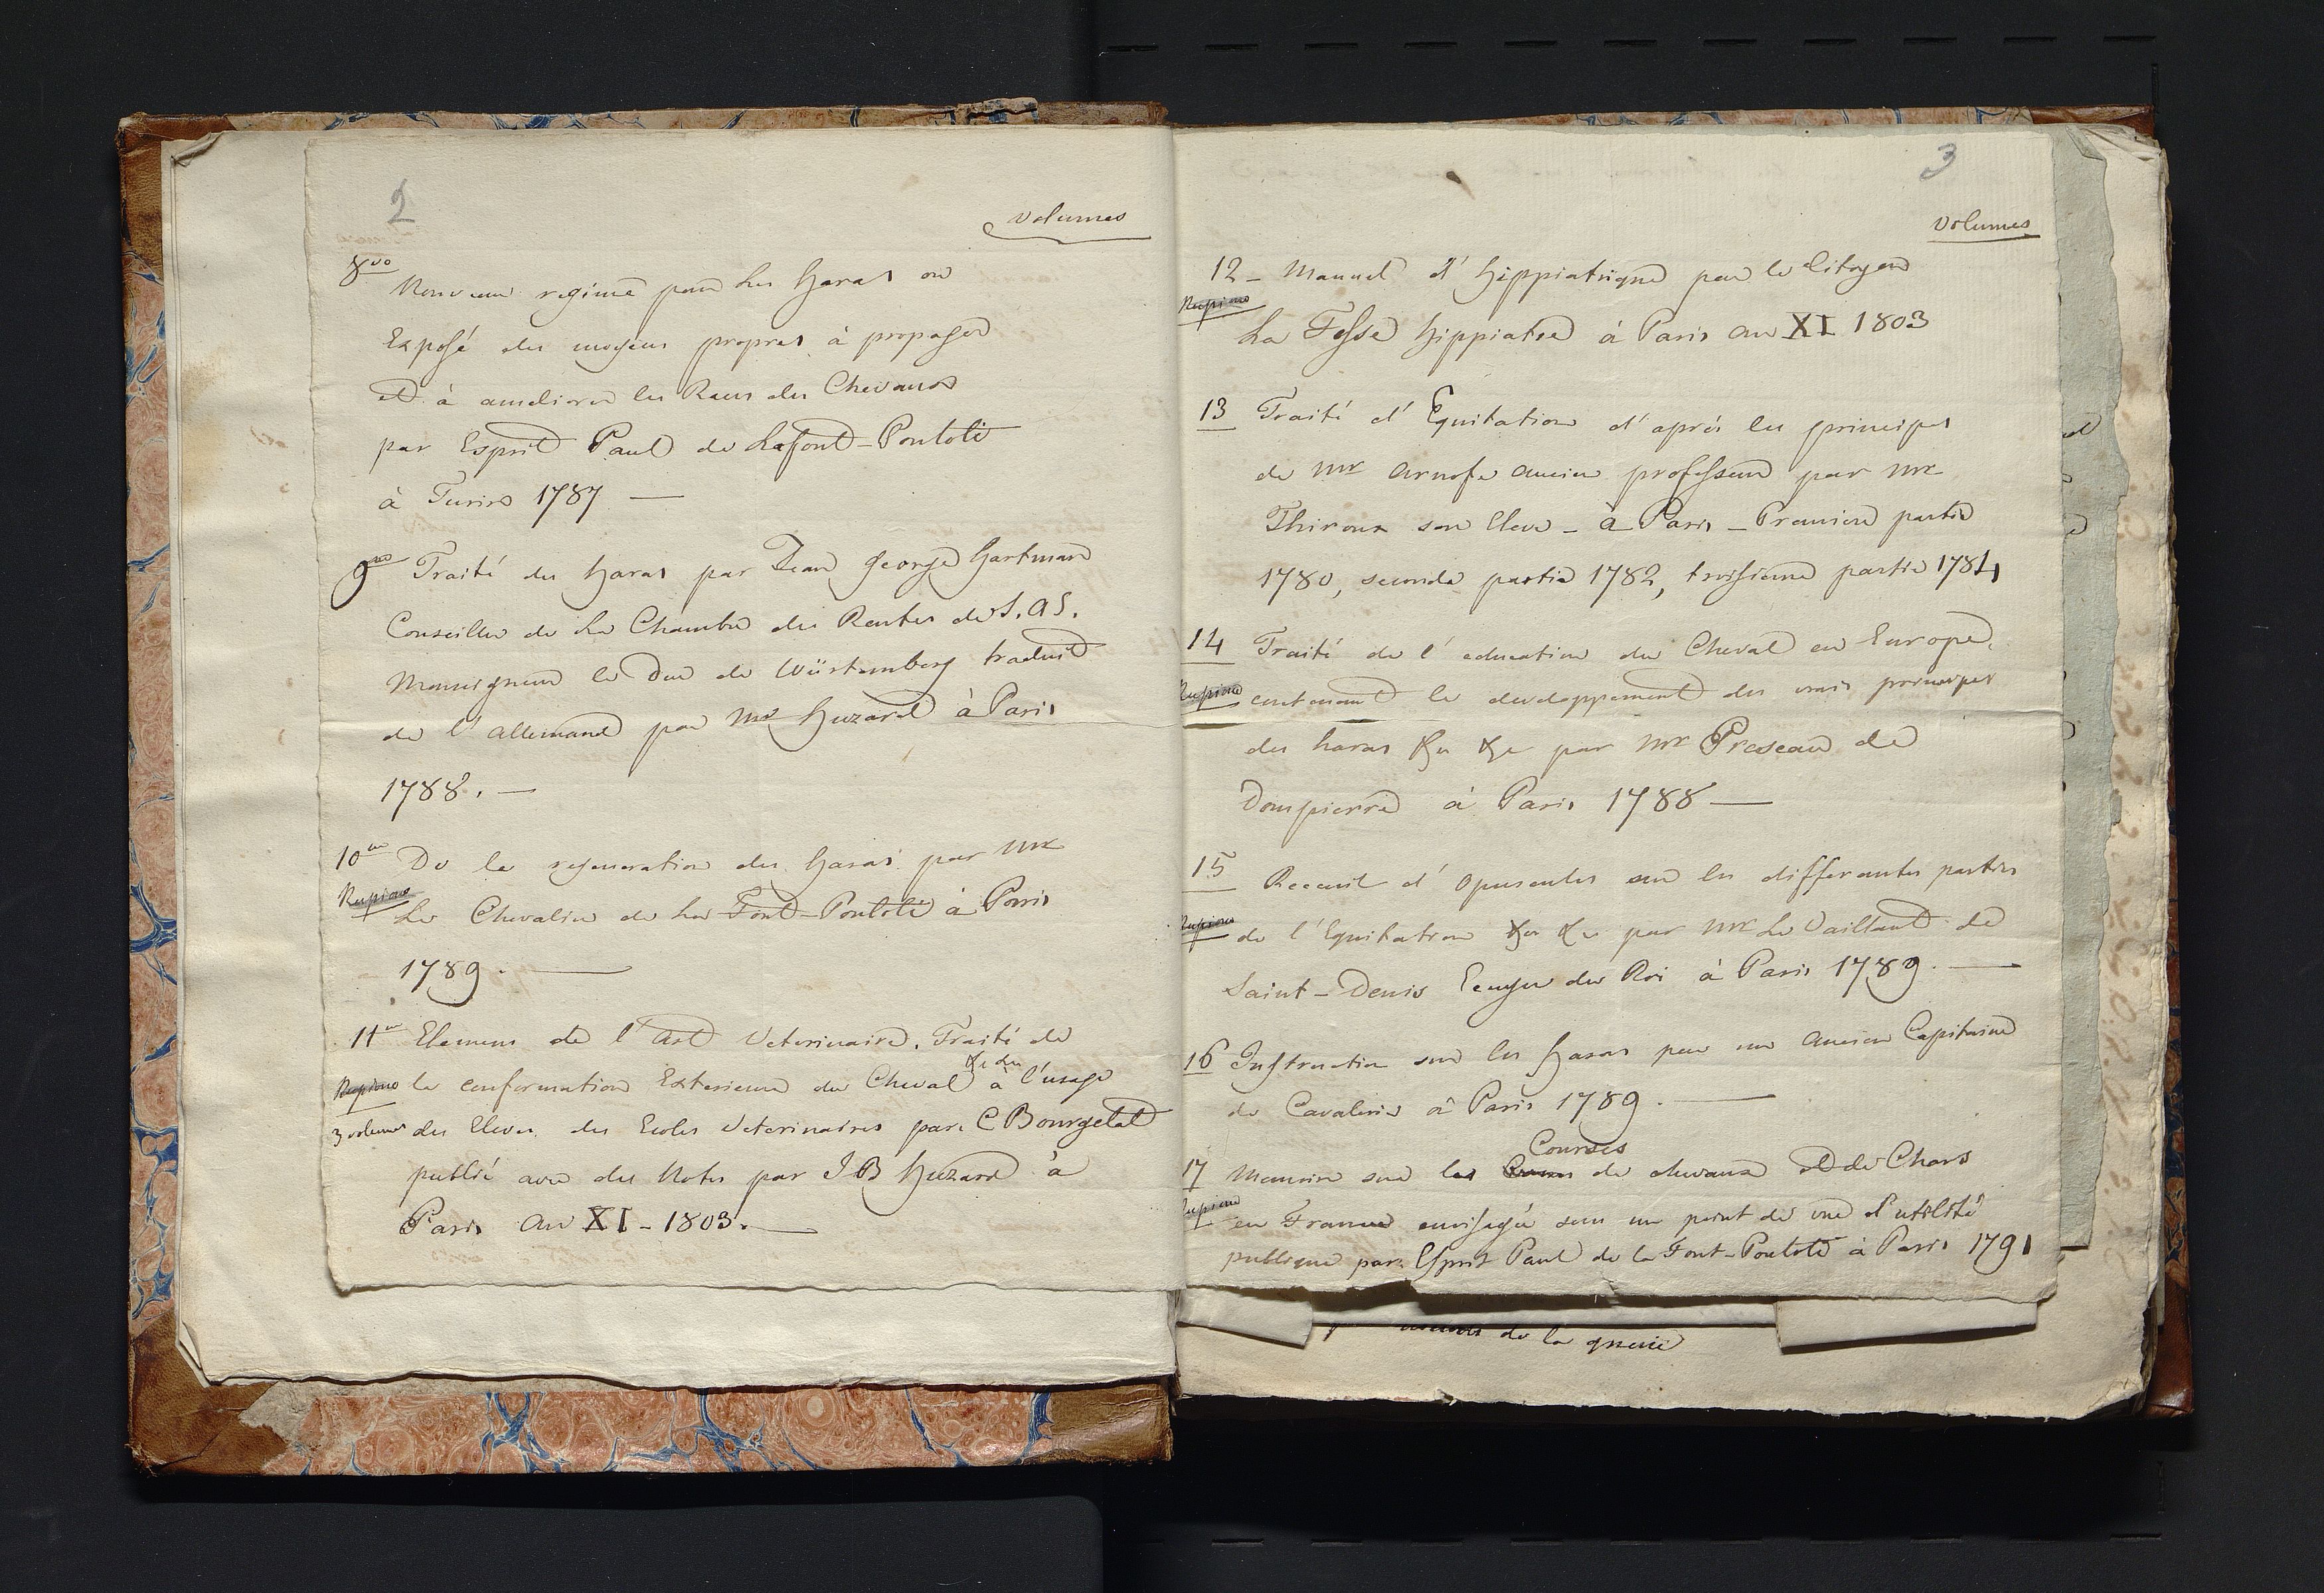 2
volumes
8vo
Nouveau regime pour les haras ou
Exposé des moyens propres à propager
et à ameliorer les Races des Chevaux
par Esprit Paul de Lafont-Pouloti
à Turin 1787 —
9no Traité des haras par Jean George hartman
Conseiller de la Chambre des Rentes de S. A S.
Monseigneur le Duc de Würtemberg traduit
de l'allemand par Mr huzard à Paris
1788. —
10me De la regeneration des haras par Mr
Le Chevalier de La Font-Pouloti à Paris
1789. —
11me Elemens de l'Art Veterinaire. Traité de
&c du
la conformation Exterieure du Cheval à l'usage
3 volumes des Eleves des Ecoles Veterinaires par C Bourgelat
publié avec des Notes par J B huzard à
Paris an XI - 1803. —
3
volumes
12 - Manuel d'hippiatrique par le Citoyen
La Fosse hippiatre à Paris an XI 1803
13 Traité d'Equitation d'après les principes
de Mr arnofe ancien professeur par Mr
Thiroux son Eleve - à Paris - Premiere partie
1780, seconde partie 1782, troisieme partie 1784
14 Traité de l'education du Cheval en Europe,
contenant le developpement des vrais principes
des haras &c &c par Mr Preseau de
Dompierre à Paris 1788 —
15 Receuil d'opuscules sur les differentes parties
de l'Equitation &c &c par Mr Le Vaillant de
Saint-Denis Ecuyer du Roi à Paris 1789. —
16 Instruction sur les haras par un ancien Capitaine
de Cavalerie à Paris 1789. —
Courses
17 Memoire sur les de chevaux et de Chars
en France envisagée sous un point de vue d'utilité
publique par Esprit Paul de la Font-Pouloti à Paris 1791
de la guerre